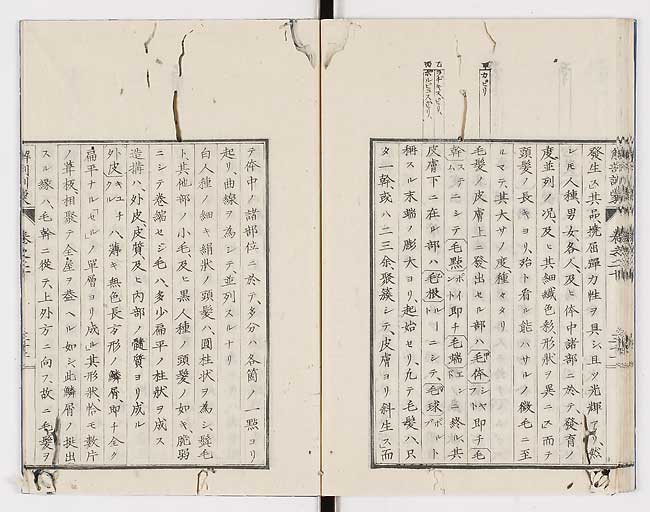 甲カピリ
發生シ其品、撓屈彈力性ヲ具シ且ツ光輝アリ、然
シ𪜈人種、男女各人、及ヒ体中諸部ニ於テ、發育ノ
度並列ノ况、及ヒ其細纎色彩形狀ヲ異ニス而テ
頭髮ノ長キヨリ、殆ト看ル能ハサルノ微毛ニ至
ルマテ、其大サノ度種々タリ
毛髮ノ皮膚上ニ發出セル部ハ毛体シヤフト即チ毛
幹ステムニシテ毛點ポイント即チ毛端エンドニ終ル、其
皮膚下ニ在ル部ハ毛根ルートニシテ、毛球ボルブト
稱スル末端ノ膨大ヨリ起始セリ、凡テ毛髮ハ、只
タ一幹、或ハ二三余、聚簇シテ、皮膚ヨリ斜生ス而
テ体中ノ諸部位ニ於テ、多分ハ各箇ノ一點ヨリ
起リ、曲線ヲ為シテ、並列スルナリ
白人種ノ細キ絹狀ノ頭髮ハ、圓柱狀ヲ為シ、鬚毛
ト其他部ノ小毛、及ヒ黒人種ノ頭髮ノ如キ、脆弱
ニシテ卷縮セシ毛ハ、多少扁平ノ柱狀ヲ成ス
造搆ハ、外皮、皮質、及ヒ内部ノ髓質ヨリ成ル
外皮キユチクルハ、薄キ無色長方形ノ鱗屑、即チ全ク
扁平ナル「セル」ノ單層ヨリ成ル其形狀恰モ數片
ノ葺板相聚テ全屋ヲ盖ヘル如シ、此鱗屑ノ挺出
スル縁ハ、毛幹ニ從テ、上外方ニ向フ、故ニ毛髮ヲ